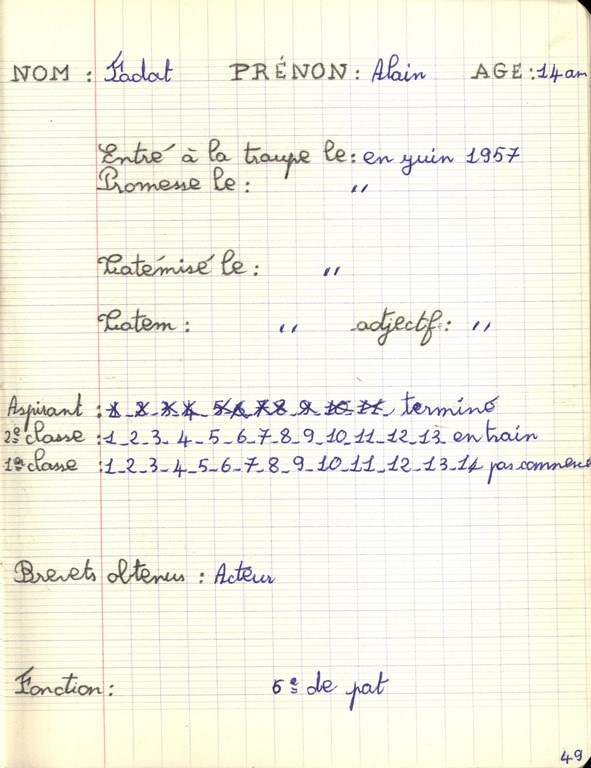 NOM : Fadat PRÉNON : Alain AGE : 14 ans
Entré à la troupe le : en juin 1957
Promesse le : "
Totémisé le : "
Totem : " adjectf : "
Aspirant : 1_2_3_4_5_6_7_8_9_10_11_ terminé
2e classe : 1_2_3_4_5_6_7_8_9_10_11_12_13_ en train
1e classe : 1_2_3_4_5_6_7_8_9_10_11_12_13_14 pas commencé
Brevets obtenus : Acteur
Fonction : 6e de pat
49